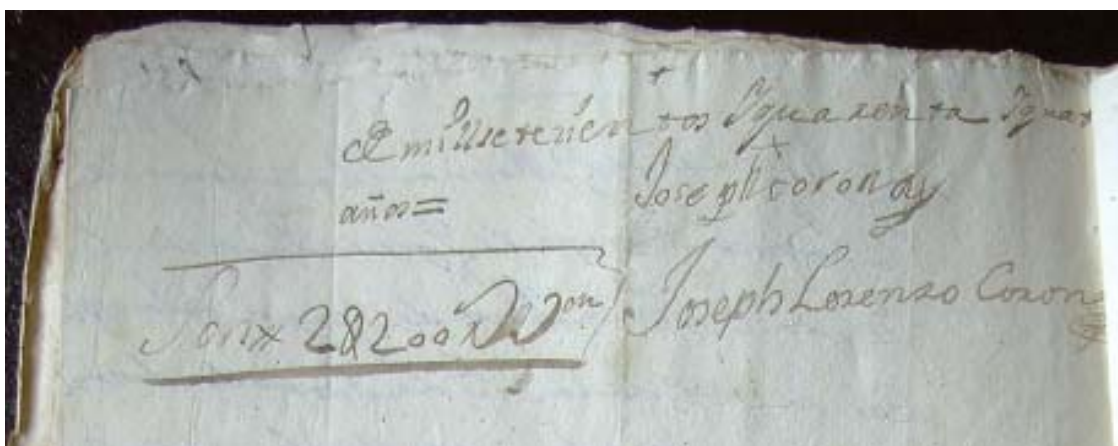 de mill setecientos Yquarenta Yquat
años=
Joseph corona
Son 28200 Von
Joseph Lorenzo Coron